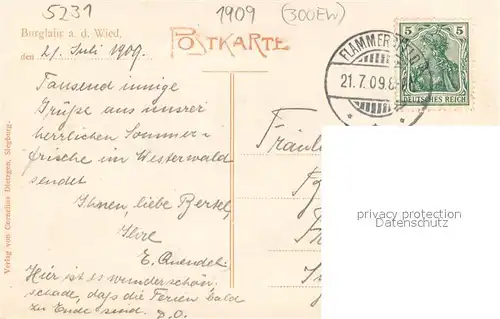 5231
1909
(300EW)
Burglahr a. d. Wied,
POSTKARTE
den 21. Juli 1909.
FLAMMERSFELD
21.7.09.8
5 5
DEUTSCHES REICH
Tausend innige
Grüße aus unsrer
herrlichen Sommer-
frische im Westerwald
sendet
Ihnen, liebe Bertel,
Ihre
E. Quendel.
Hier ist es wunderschön
schade, daß die Ferien bald
zu Ende send. D.O.
Fräulein
privacy protection
Datenschutz
Verlag von Cornelius Dietzgen, Siegburg.